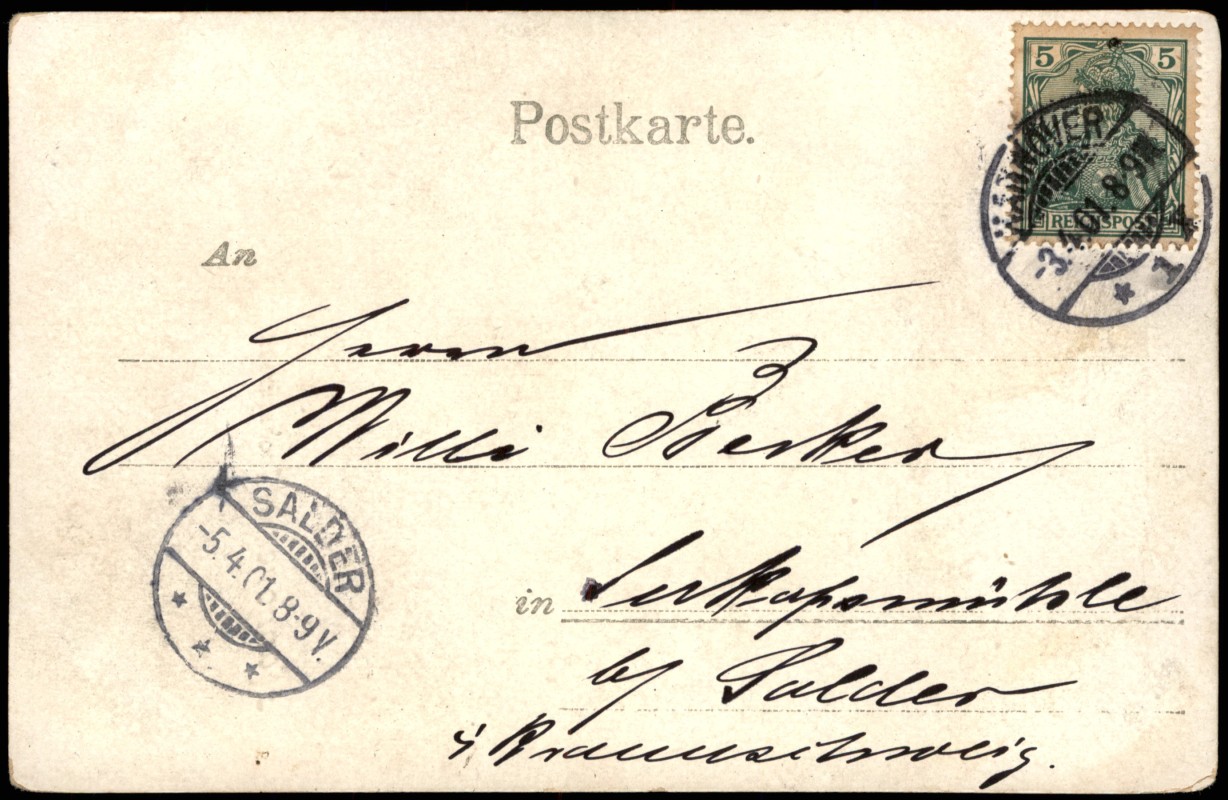 Postkarte.
5 5
REICHSPOST
HANNOVER
-3.4.01.8-9N.
* 1 *
An
Herrn
Willi Becker
SALDER
-5.4.01.8-9V.
* * *
in
b/ Salder
i/ Braunschweig.